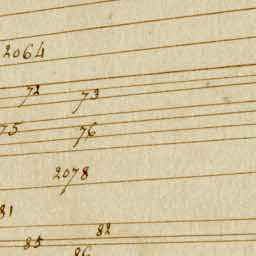 2064
72 73
75 76
2078
81
82
85
86